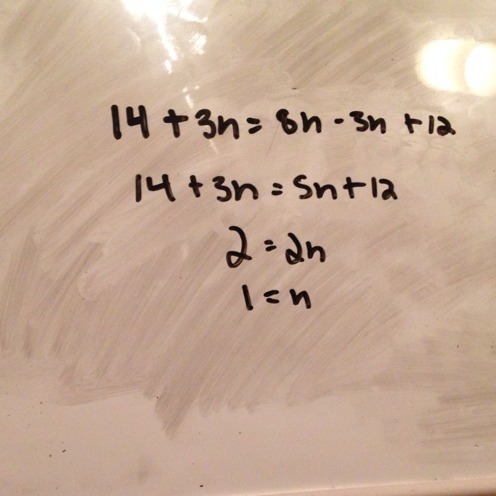 14 + 3n = 8n - 3n + 12
14 + 3n = 5n + 12
2 = 2n
1 = n